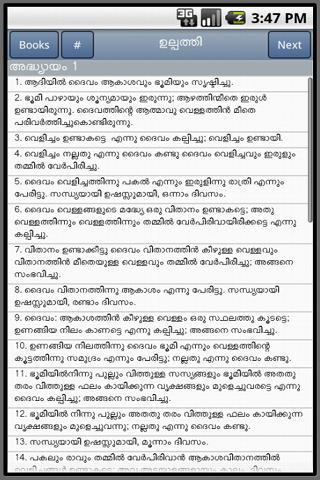 3G
3:47 PM
Books
#
ഉല്പത്തി
Next
അദ്ധ്യായം 1
1. ആദിയിൽ ദൈവം ആകാശവും ഭൂമിയും സൃഷ്ടിച്ചു.
2. ഭൂമി പാഴായും ശൂന്യമായും ഇരുന്നു; ആഴത്തിന്മീതെ ഇരുൾ
ഉണ്ടായിരുന്നു. ദൈവത്തിന്റെ ആത്മാവു വെള്ളത്തിൻ മീതെ
പരിവർത്തിച്ചുകൊണ്ടിരുന്നു.
3. വെളിച്ചം ഉണ്ടാകട്ടെ എന്നു ദൈവം കല്പിച്ചു; വെളിച്ചം ഉണ്ടായി.
4. വെളിച്ചം നല്ലതു എന്നു ദൈവം കണ്ടു ദൈവം വെളിച്ചവും ഇരുളും
തമ്മിൽ വേർപിരിച്ചു.
5. ദൈവം വെളിച്ചത്തിന്നു പകൽ എന്നും ഇരുളിന്നു രാത്രി എന്നും
പേരിട്ടു. സന്ധ്യയായി ഉഷസ്സുമായി, ഒന്നാം ദിവസം.
6. ദൈവം വെള്ളങ്ങളുടെ മദ്ധ്യേ ഒരു വിതാനം ഉണ്ടാകട്ടെ; അതു
വെള്ളത്തിന്നും വെള്ളത്തിന്നും തമ്മിൽ വേർപിരിവായിരിക്കട്ടെ എന്നു
കല്പിച്ചു.
7. വിതാനം ഉണ്ടാക്കീട്ടു ദൈവം വിതാനത്തിൻ കീഴുള്ള വെള്ളവും
വിതാനത്തിൻ മീതെയുള്ള വെള്ളവും തമ്മിൽ വേർപിരിച്ചു; അങ്ങനെ
സംഭവിച്ചു.
8. ദൈവം വിതാനത്തിന്നു ആകാശം എന്നു പേരിട്ടു. സന്ധ്യയായി
ഉഷസ്സുമായി, രണ്ടാം ദിവസം.
9. ദൈവം: ആകാശത്തിൻ കീഴുള്ള വെള്ളം ഒരു സ്ഥലത്തു കൂടട്ടെ;
ഉണങ്ങിയ നിലം കാണട്ടെ എന്നു കല്പിച്ചു; അങ്ങനെ സംഭവിച്ചു.
10. ഉണങ്ങിയ നിലത്തിന്നു ദൈവം ഭൂമി എന്നും വെള്ളത്തിന്റെ
കൂട്ടത്തിന്നു സമുദ്രം എന്നും പേരിട്ടു; നല്ലതു എന്നു ദൈവം കണ്ടു.
11. ഭൂമിയിൽനിന്നു പുല്ലും വിത്തുള്ള സസ്യങ്ങളും ഭൂമിയിൽ അതതു
തരം വിത്തുള്ള ഫലം കായിക്കുന്ന വൃക്ഷങ്ങളും മുളെച്ചുവരട്ടെ എന്നു
ദൈവം കല്പിച്ചു; അങ്ങനെ സംഭവിച്ചു.
12. ഭൂമിയിൽ നിന്നു പുല്ലും അതതു തരം വിത്തുള്ള ഫലം കായിക്കുന്ന
വൃക്ഷങ്ങളും മുളെച്ചുവന്നു; നല്ലതു എന്നു ദൈവം കണ്ടു.
13. സന്ധ്യയായി ഉഷസ്സുമായി, മൂന്നാം ദിവസം.
14. പകലും രാവും തമ്മിൽ വേർപിരിവാൻ ആകാശവിതാനത്തിൽ